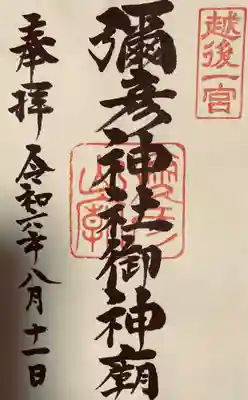 越後一宮
彌彦神社御神廟
奉拝 令和六年八月十一日